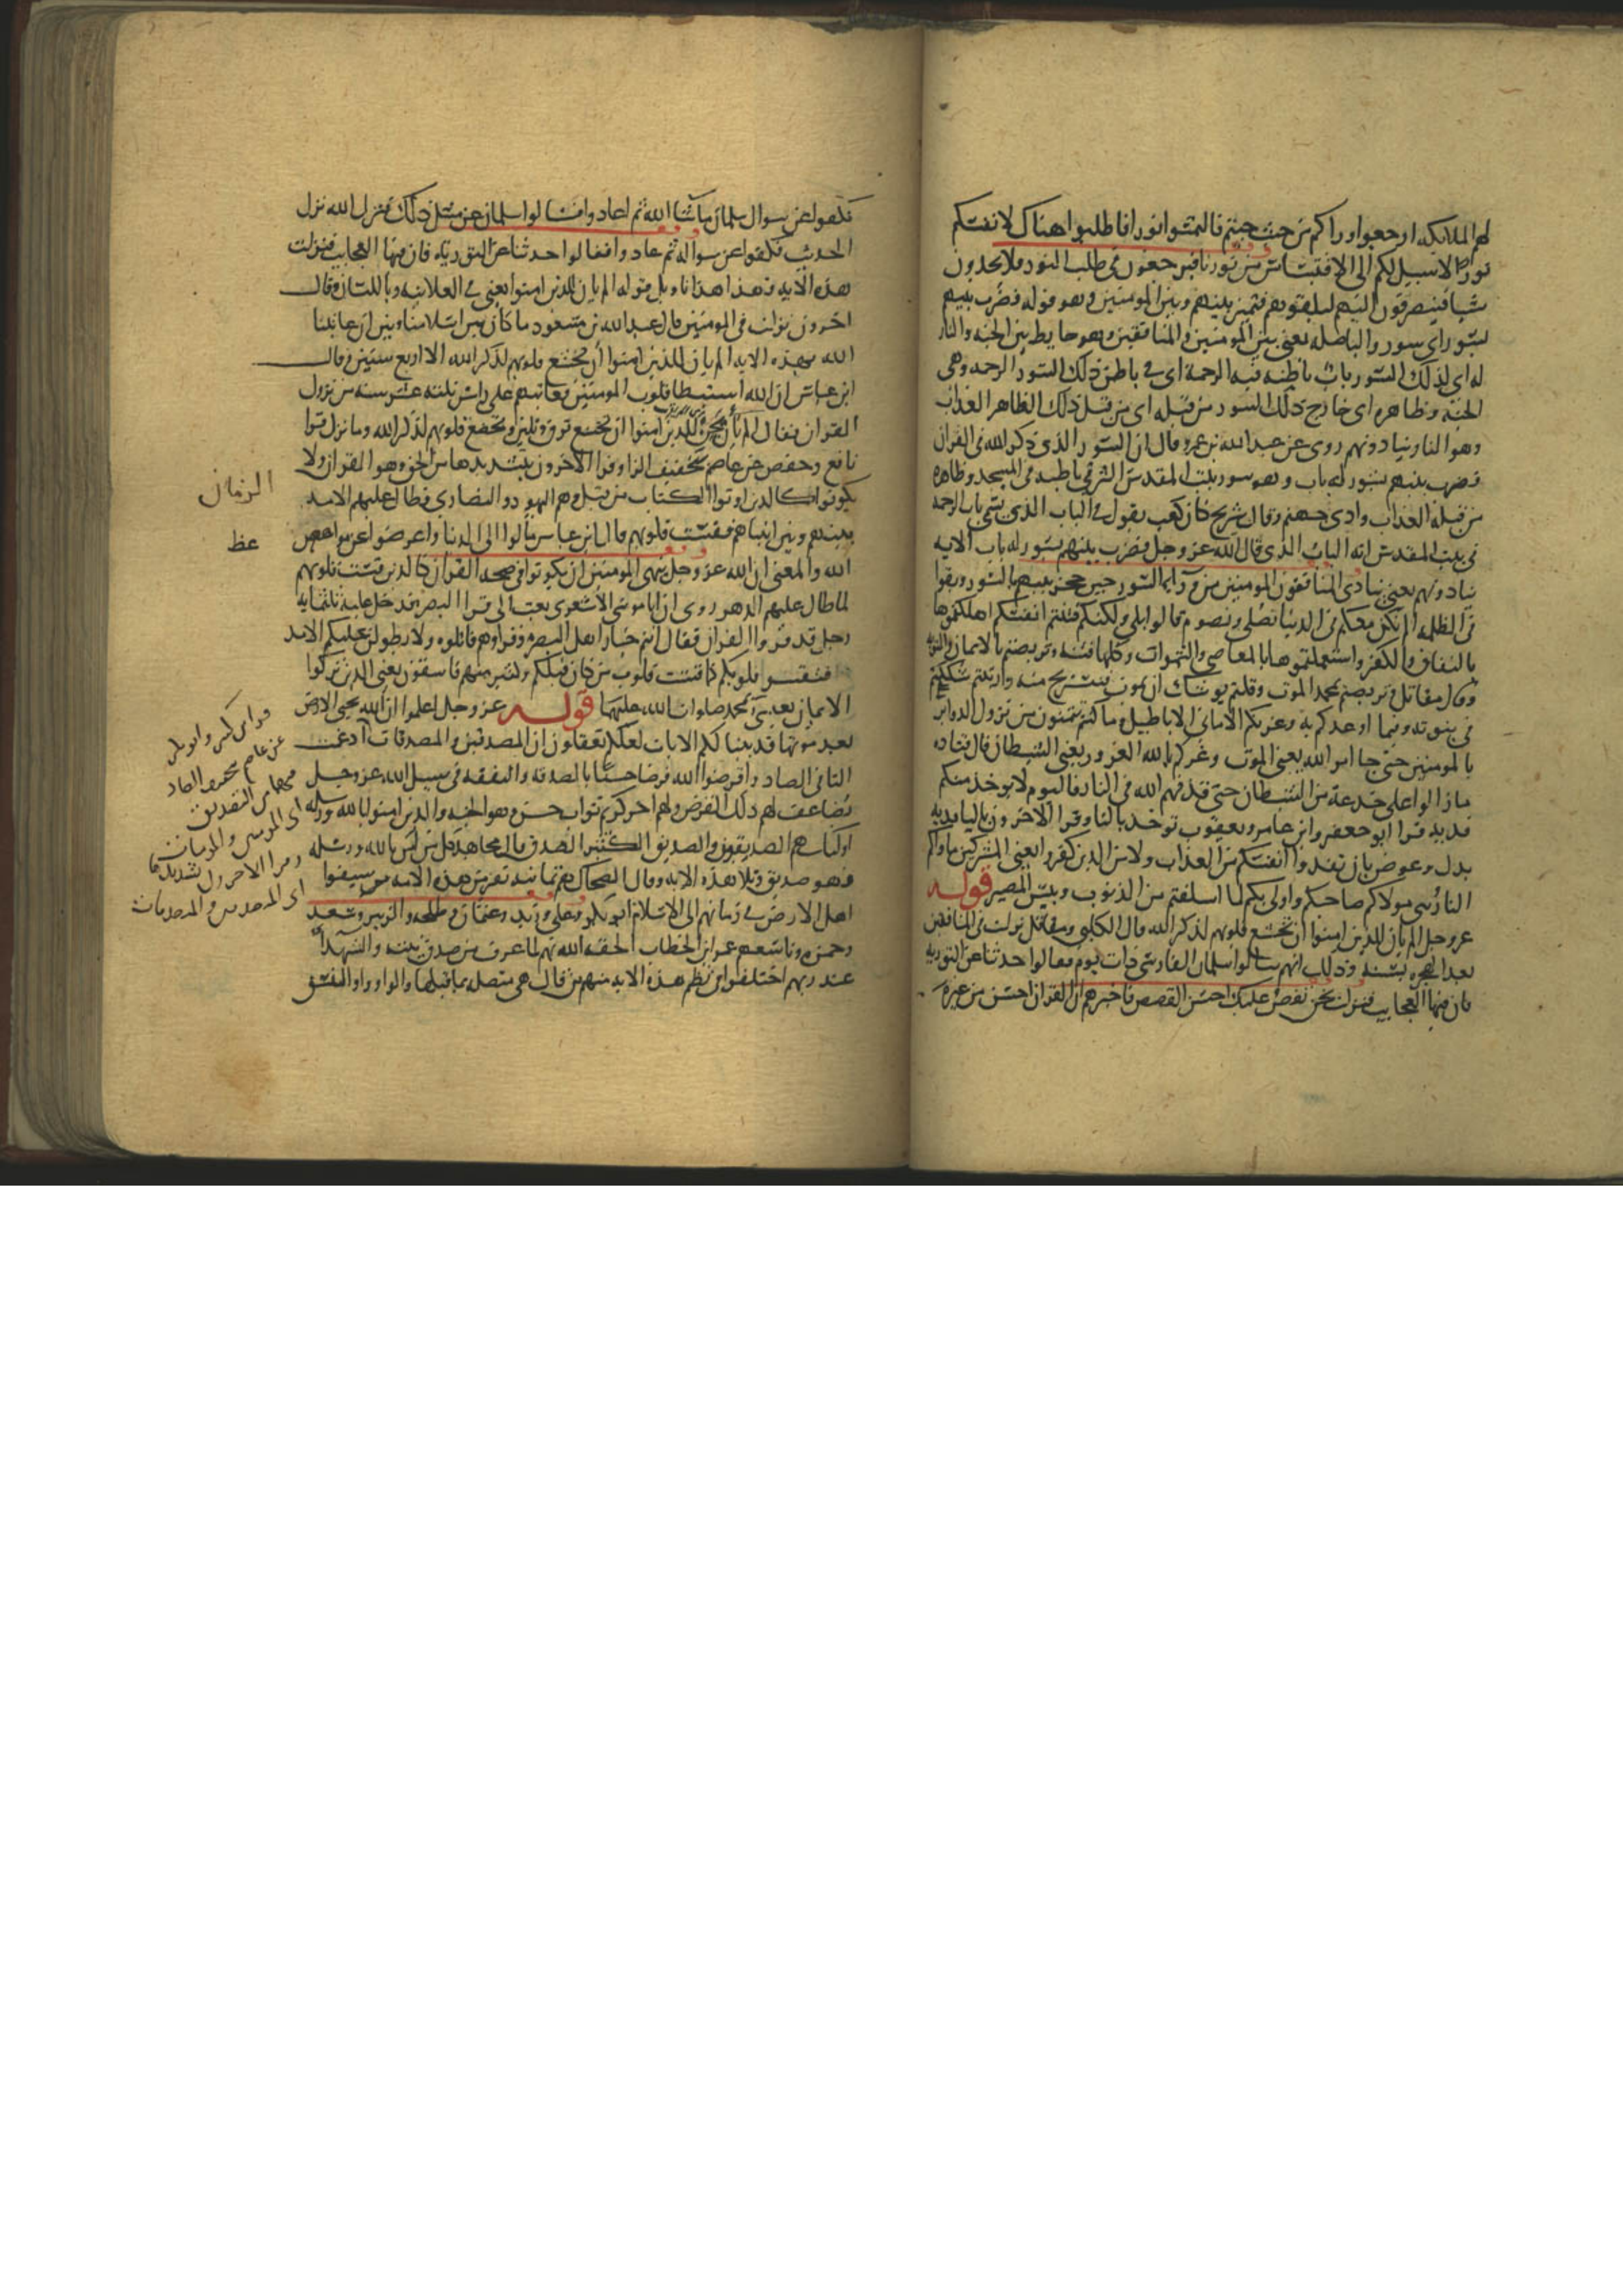 لهم الملائكه ارجعوا وراكم من حيث جيتم فالتمسوا نورا فاطلبوا هناك لانفسكم
نورا لا سبيل لكم الى الاقتباس من نورنا فيرجعون في طلب النور فلا يجدون
شيا فينصرفون اليهم ليلقوهم فتميز بينهم وبين المومنين وهو قوله فضرب بينهم
بسور اي سور والبا صله يعني بين المومنين والمنافقين وهو حايط بين الجنه والنار
له اي لذلك السور باب باطنه فيه الرحمة اي في باطن ذلك السور الرحمه وهي
الجنه وظاهره اي خارج ذلك السور من قبله اي من قبل ذلك الظاهر العذاب
وهو النار ينادونهم روى عن عبد الله بن عمرو قال ان السور الذي ذكر الله في القران
فضرب بينهم بسور له باب وهو سور بيت المقدس الشرقي باطنه في المسجد وظاهره
من قبله العذاب وادي جهنم وقال شريح كان كعب يقول في الباب الذي يسمى باب الرحمه
في بيت المقدس انه الباب الذي قال الله عز وجل فضرب بينهم بسور له باب الايه
ينادونهم يعني ينادي المنافقون المومنين من وراء السور حين حجز بينهم بالسور وبقوا
في الظلمه الم نكن معكم في الدنيا نصلي ونصوم قالوا بلى ولكنكم فتنتم انفسكم اهلكتموها
بالنفاق والكفر واستعملتموها بالمعاصي والشهوات وكلها فتنه وتربصتم بالايمان والتوبه
وقال مقاتل تربصتم بمحمد الموت وقلتم يوشك ان يموت فنستريح منه وارتبتم شككتم
في نبوته وفيما اوعدكم به وغرتكم الاماني الاباطيل وما كنتم تتمنون من نزول الدواير
بالمومنين حتى جا امر الله يعني الموت وغركم بالله الغرور يعني الشيطان قال قتاده
ما زالوا على خدعة من الشيطان حتى قذفهم الله في النار فاليوم لا يوخذ منكم
فديه قرا ابو جعفر وابن عامر ويعقوب توخذ بالتا وقرا الاخرون باليا فديه
بدل وعوض بان تفدوا انفسكم من العذاب ولا من الذين كفروا يعني المشركين ماواكم
النار هي مولاكم صاحبكم واولى بكم لما اسلفتم من الذنوب وبيس المصير قوله
عز وجل الم يان للذين امنوا ان تخشع قلوبهم لذكر الله قال الكلبي ومقاتل نزلت في المنافقين
بعد الهجره بسنه وذلك انهم سالوا سلمان الفارسي ذات يوم فقالوا حدثنا عن التوريه
فان فيها العجايب فنزلت نحن نقص عليك احسن القصص فاخبرهم ان القران احسن من غيره
فكفوا عن سوال سلمان ما شا الله ثم عادوا فسالوا سلمان عن مثل ذلك فنزل الله نزل
الحديث فكفوا عن سواله ثم عادوا فقالوا حدثنا عن التوريه فان فيها العجايب فنزلت
هذه الايه فهذا هذا تاويل قوله الم يان للذين امنوا يعني في العلانيه وباللسان وقال
اخرون نزلت في المومنين قال عبد الله بن مسعود ما كان بين اسلامنا وبين ان عاتبنا
الله بهذه الايه الم يان للذين امنوا ان تخشع قلوبهم لذكر الله الا اربع سنين وقال
ابن عباس ان الله استبطا قلوب المومنين فعاتبهم على راس ثلثه عشر سنه من نزول
القران فقال الم يان يحن للذين امنوا ان تخشع ترق وتلين وتخضع قلوبهم لذكر الله وما نزل قرا
نافع وحفص عن عاصم بتخفيف الزا وقرا الاخرون بتشديدها من الحق وهو القران ولا
يكونوا كالذين اوتوا الكتاب من قبل وهم اليهود والنصارى فطال عليهم الامد
الزمان
بينهم وبين انبياهم فقست قلوبهم قال ابن عباس مالوا الى الدنيا واعرضوا عن مواعظ
عظ
الله والمعنى ان الله عز وجل ينهى المومنين ان يكونوا في صحبه القران كالذين قست قلوبهم
لما طال عليهم الدهر روى ان ابا موسى الاشعري بعث الى قرا البصره فدخل عليه ثلثمايه
رجل قد قروا القران فقال انتم خيار اهل البصره وقراوهم فاتلوه ولا يطولن عليكم الامد
فتقسو قلوبكم كما قست قلوب من كان قبلكم وكثير منهم فاسقون يعني الذين تركوا
الايمان بعيسى ومحمد صلوات الله عليهما قوله عز وجل اعلموا ان الله يحيي الارض
بعد موتها قد بينا لكم الايات لعلكم تعقلون ان المصدقين والمصدقات ادغمت
التا في الصاد واقرضوا الله قرضا حسنا بالصدقه والنفقه في سبيل الله عز وجل
يضاعف لهم ذلك القرض ولهم اجر كريم ثواب حسن وهو الجنه والذين امنوا بالله ورسله
اوليك هم الصديقون والصديق الكثير الصدق قال مجاهد كل من امن بالله ورسله
فهو صديق وتلا هذه الايه وقال الضحاك هم ثمانيه نفر من هذه الامه سبقوا
اهل الارض في زمانهم الى الاسلام ابو بكر وعلي وزيد وعثمان وطلحه والزبير وسعد
وحمزه وتاسعهم عمر ابن الخطاب الحقه الله بهم لما عرف من صدق نيته والشهدا
عند ربهم اختلفوا في نظم هذه الايه منهم من قال هي متصله بما قبلها والواو واو النسق
قرا ابن كثير وابو بكر
عن عاصم بتخفيف الصاد
فيهما من التصديق
اي المومنين والمومنات
وقرا الاخرون بتشديدها
اي المتصدقين والمتصدقات